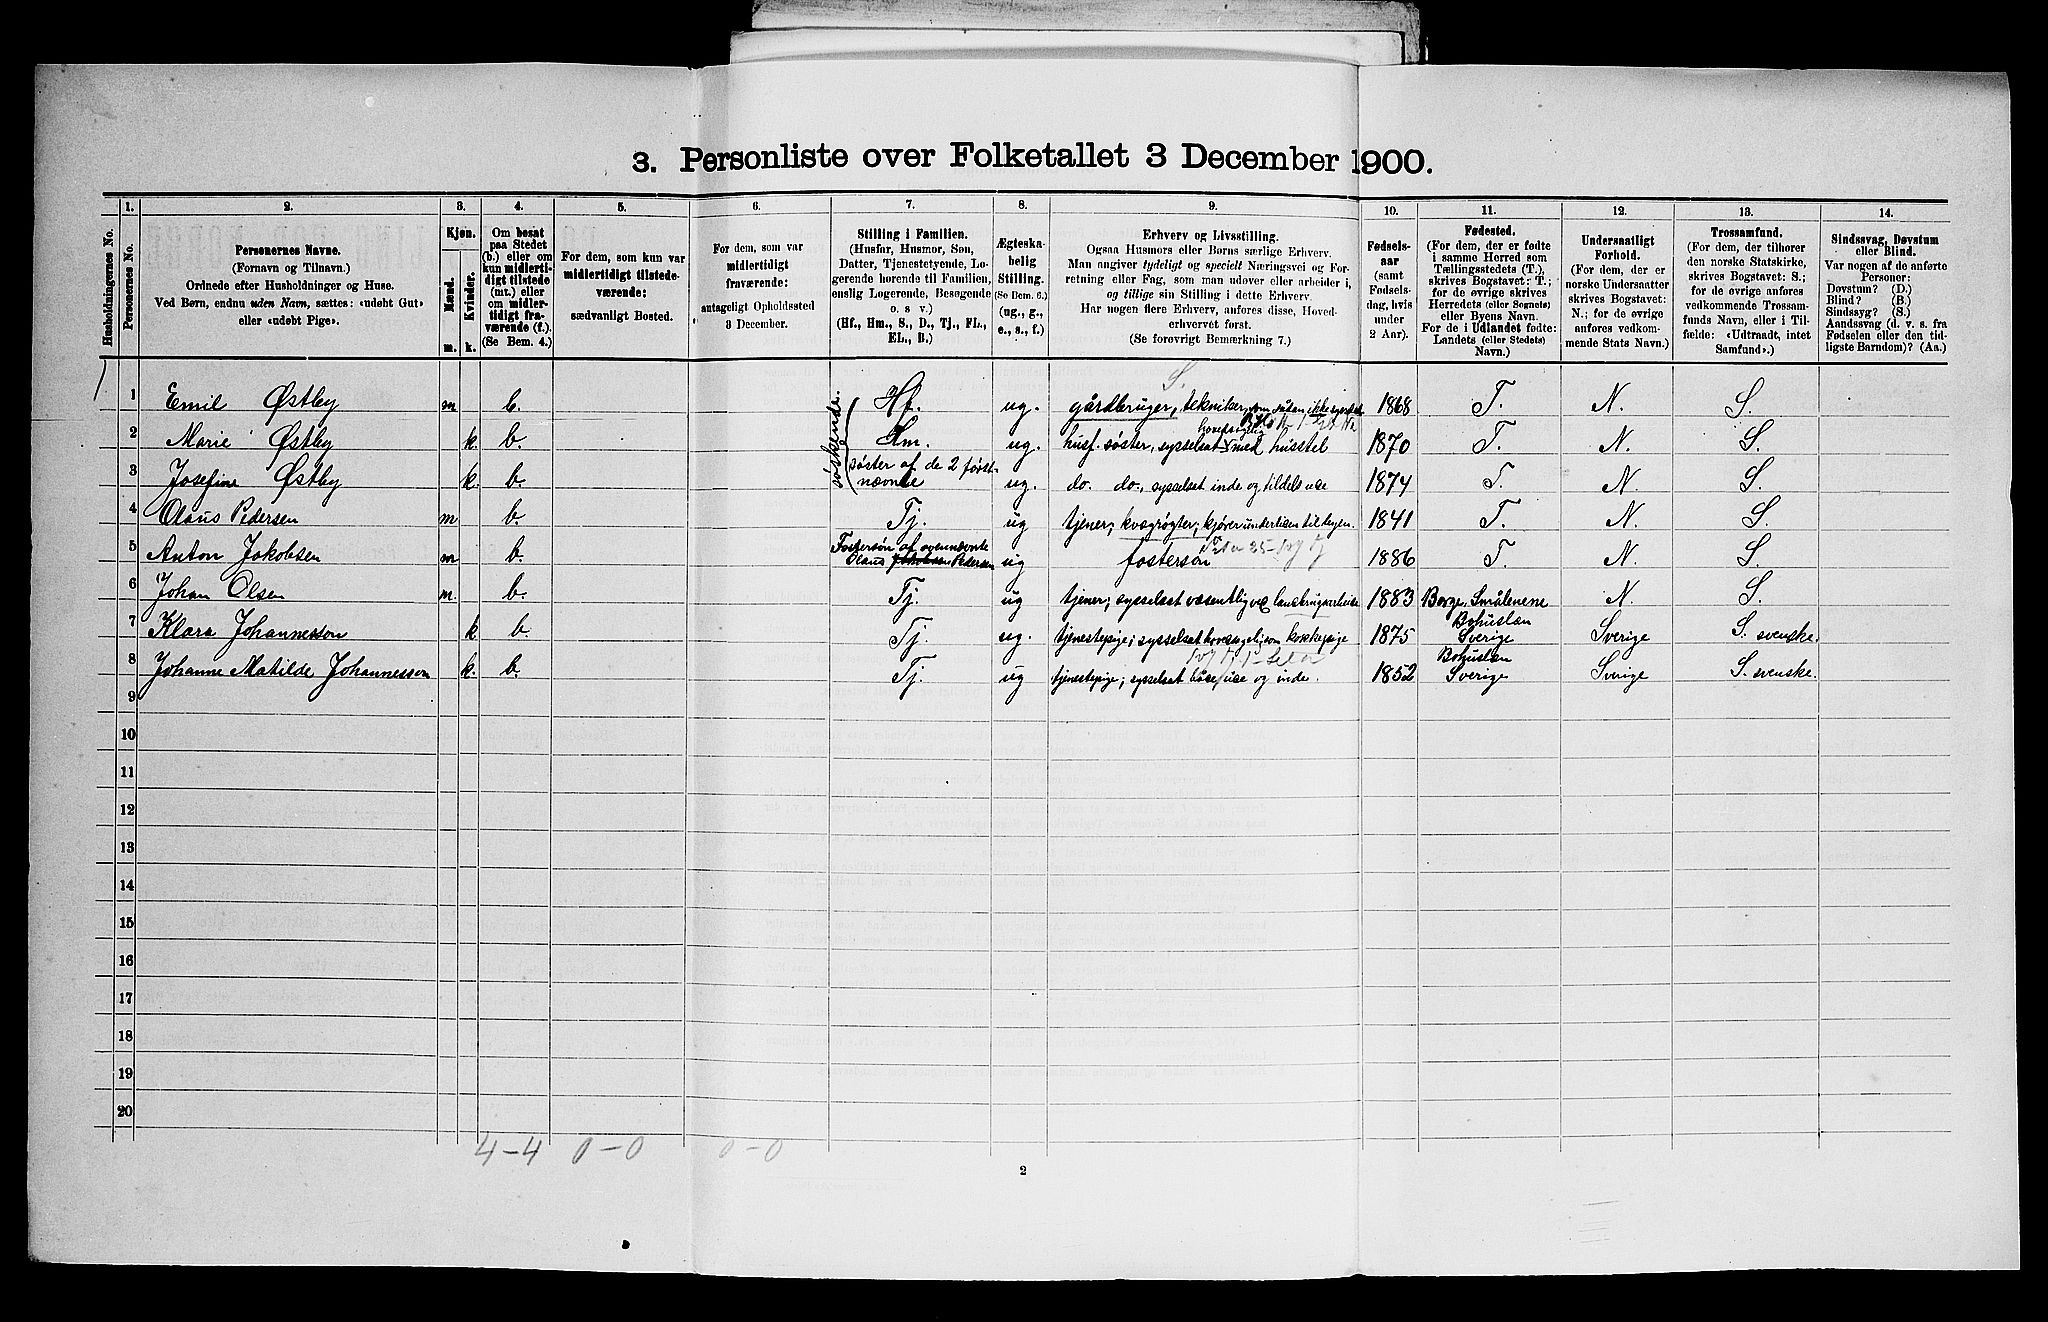 3. Personliste over Folketallet 3 December 1900.
1. 2. 3. 4. 5. 6. 7. 8. 9. 10. 11. 12. 13. 14.
Husholdningernes No.
Personernes No.
Personernes Navne.
(Fornavn og Tilnavn.)
Ordnede efter Husholdninger og Huse.
Ved Børn, endnu uden Navn, sættes: «udøbt Gut»
eller «udøbt Pige».
Kjøn.
Mænd.
Kvinder.
m. k.
Om bosat
paa Stedet
(b.) eller om
kun midlerti-
digt tilstede
(mt.) eller
om midler-
tidigt fra-
værende (f.).
(Se Bem. 4.)
For dem, som kun var
midlertidigt tilstede-
værende:
sædvanligt Bosted.
For dem, som var
midlertidigt
fraværende:
antageligt Opholdssted
3 December.
Stilling i Familien.
(Husfar, Husmor, Søn,
Datter, Tjenestetyende, Lo-
gerende hørende til Familien,
enslig Logerende, Besøgende
o. s v.)
(Hf., Hm., S., D., Tj., FL.,
EL., B.)
Ægteska-
belig
Stilling.
(Se Bem. 6.)
(ug., g.,
e., s., f.)
Erhverv og Livsstilling.
Ogsaa Husmors eller Børns særlige Erhverv.
Man angiver tydeligt og specielt Næringsvei og For-
retning eller Fag, som man udøver eller arbeider i,
og tillige sin Stilling i dette Erhverv.
Har nogen flere Erhverv, anføres disse, Hoved-
erhvervet først.
(Se forøvrigt Bemærkning 7.)
Fødsels-
aar
(samt
Fødsels-
dag, hvis
under
2 Aar).
Fødested.
(For dem, der er fødte
i samme Herred som
Tællingsstedets (T.),
skrives Bogstavet: T.;
for de øvrige skrives
Herredets (eller Sognets)
eller Byens Navn.
For de i Udlandet fødte:
Landets (eller Stedets)
Navn.)
Undersaatligt
Forhold.
(For dem, der er
norske Undersaatter
skrives Bogstavet:
N.; for de øvrige
anføres vedkom-
mende Stats Navn.)
Trossamfund.
(For dem, der tilhører
den norske Statskirke,
skrives Bogstavet: S.;
for de øvrige anføres
vedkommende Trossam-
funds Navn, eller i Til-
fælde: «Udtraadt, intet
Samfund».)
Sindssvag, Døvstum
eller Blind.
Var nogen af de anførte
Personer:
Døvstum? (D.)
Blind? (B.)
Sindssyg? (S.)
Aandssvag (d. v. s. fra
Fødselen eller den tid-
ligste Barndom)? (Aa.)
S.
søskende.
1 1 Emil Østby m b. Hf. ug. gårdbruger, tekniker, som sådan ikke 1868 T. N. S.
2 Marie Østby k. b. Hm. ug. husf. søster, sysselsat hovedsagelig med husstel 1870 T. N. S.
3 Josefine Østby k. b. søster af de 2 først-
nævnte ug. do. do., sysselsat inde og tildels ude 1874 T. N. S.
4 Olaus Pedersen m b. Tj. ug tjener; kvægrøgter; kjører undertiden til byen. 1841 T. N. S.
5 Anton Jakobsen m b. Fostersøn af ovennævnte
Olaus Pedersen ug fostersøn 1886 T. N. S.
6 Johan Olsen m. b. Tj. ug tjener; sysselsat væsentlig ved landbrugsarbeide 1883 Borge, Smålenene N. S.
7 Klara Johannesson k b. Tj. ug. tjenestepige; sysselsat hovedsagelig som kokkepige 1875 Bohuslen
Sverige Sverige S. svenske.
8 Johanne Matilde Johannesson k. b. Tj. ug tjenestepige; sysselsat både ude og inde. 1852 Bohuslen
Sverige Sverige S. svenske.
9
10
11
12
13
14
15
16
17
18
19
20
4-4 0-0 0-0
2